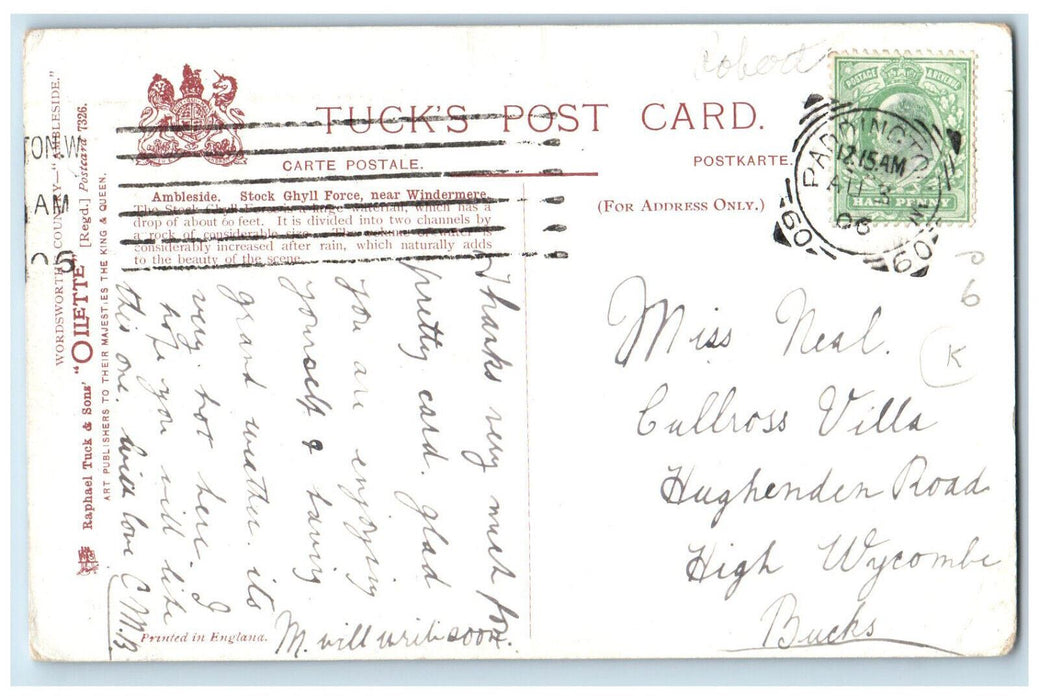 Robert
TUCK'S POST CARD.
CARTE POSTALE.
POSTKARTE.
(FOR ADDRESS ONLY.)
Ambleside. Stock Ghyll Force, near Windermere.
The Stock Ghyll Force is a large waterfall, which has a
drop of about 60 feet. It is divided into two channels by
a rock of considerable size. The volume of water is
considerably increased after rain, which naturally adds
to the beauty of the scene.
WORDSWORTH COUNTRY—"AMBLESIDE."
Raphael Tuck & Sons' "OILETTE" [Regd.] Postcard 7326.
ART PUBLISHERS TO THEIR MAJESTIES THE KING & QUEEN.
TON.W
AM
06
POSTAGE & REVENUE
HALF PENNY
PADDINGTON W
12.15 AM
AU 3
06
60
60
Thanks very much for
pretty card. glad
you are enjoying
yourself & having
grand weather. its
very hot here. I
hope you will like
this one. with love C.M.B.
M. will write soon.
Printed in England.
Miss Neal.
Cullross Villa
Hughenden Road
High Wycombe
Bucks
6
K